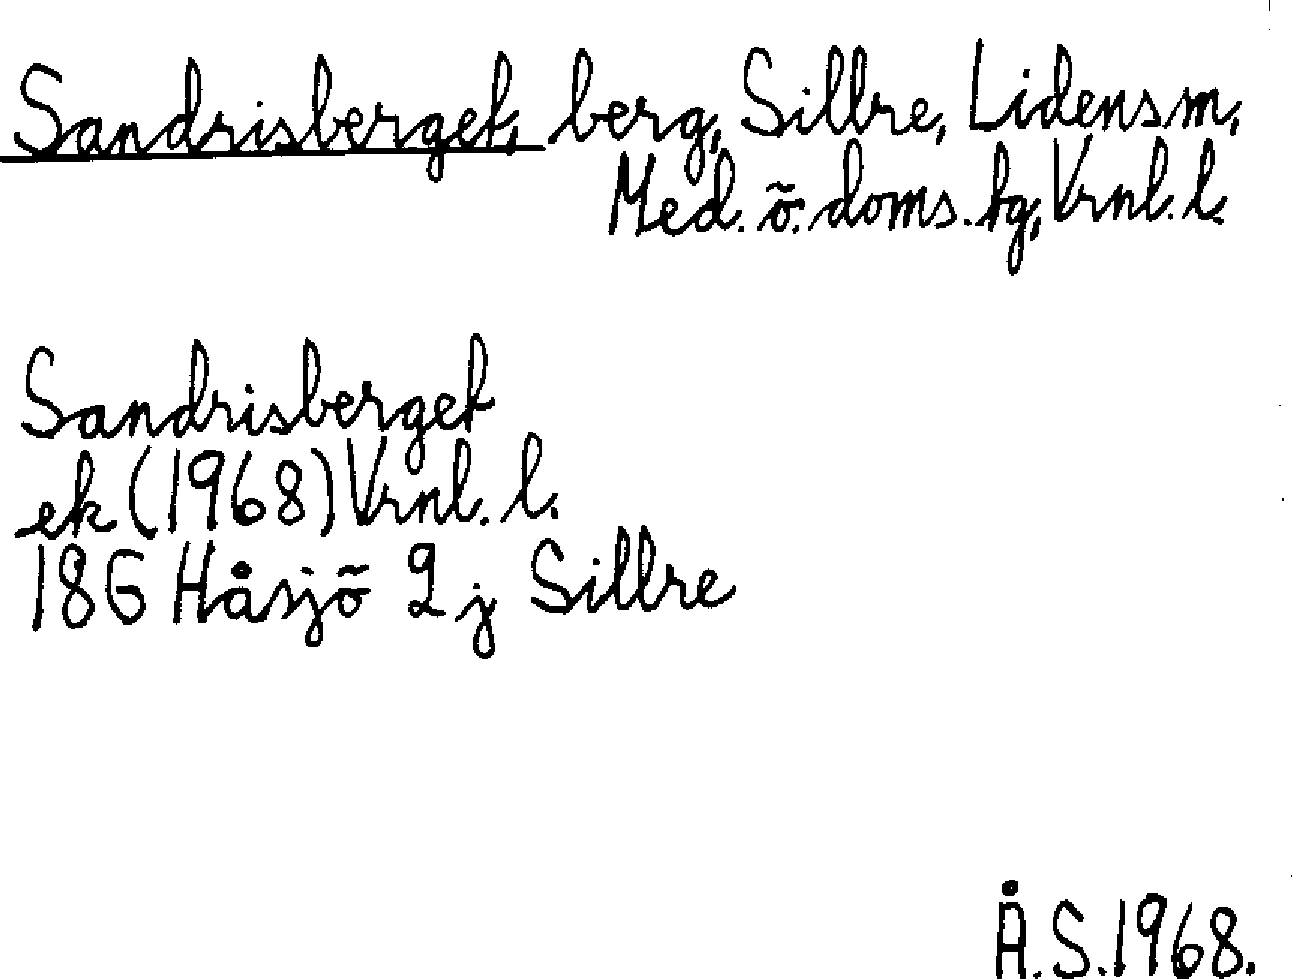 Sandrisberget, berg, Sillre, Lidens sn,
Med. ö. doms. tg, Vrnl. l.
Sandrisberget
ek (1968) Vrnl. l.
18G Håsjö 2 j Sillre
Å.S. 1968.